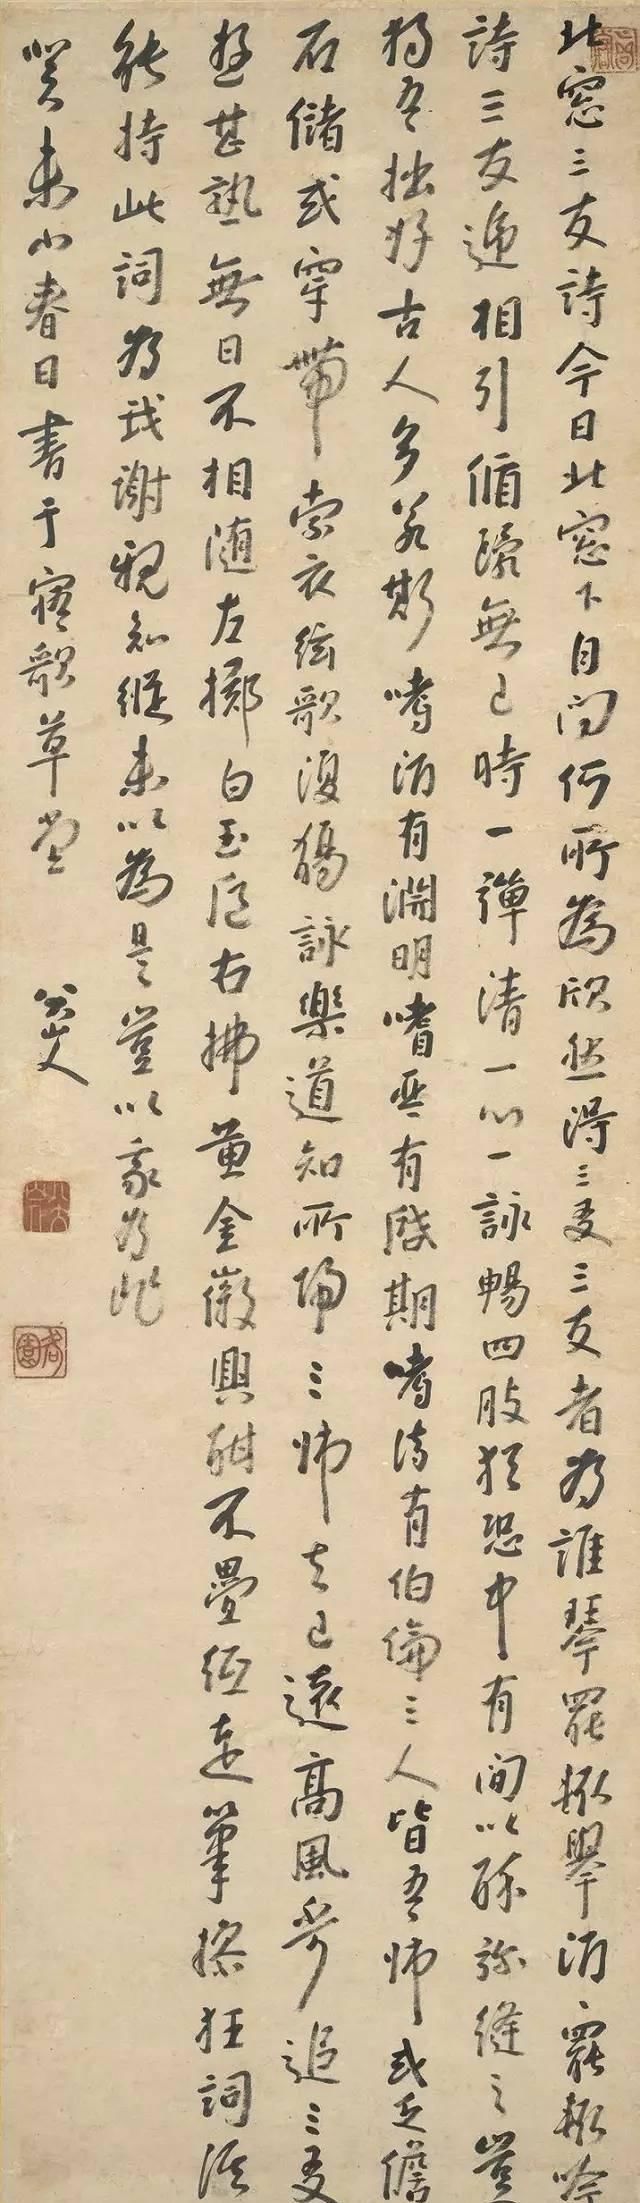 北窓三友詩今日北窓下自問何所為欣然得三友三友者為誰琴罷輒舉酒〻罷輒吟
詩三友遞相引循環無已時一彈清一心一詠暢四肢猶恐中有間以酔弥縫之豈
獨吾拙好古人多若斯嗜酒有淵明嗜琴有啟期嗜詩有伯倫三人皆吾師或乏儋
石儲或穿帶索衣絃歌復觴詠樂道知所歸三師去已遠高風不可追三友
遊甚熟無日不相随左擲白玉卮右拂黃金徽興酣不疊紙走筆操狂詞誰
能持此詞為我謝親知縱未以為是豈以我為非
癸未小春日書于寤歌草堂
八大山人